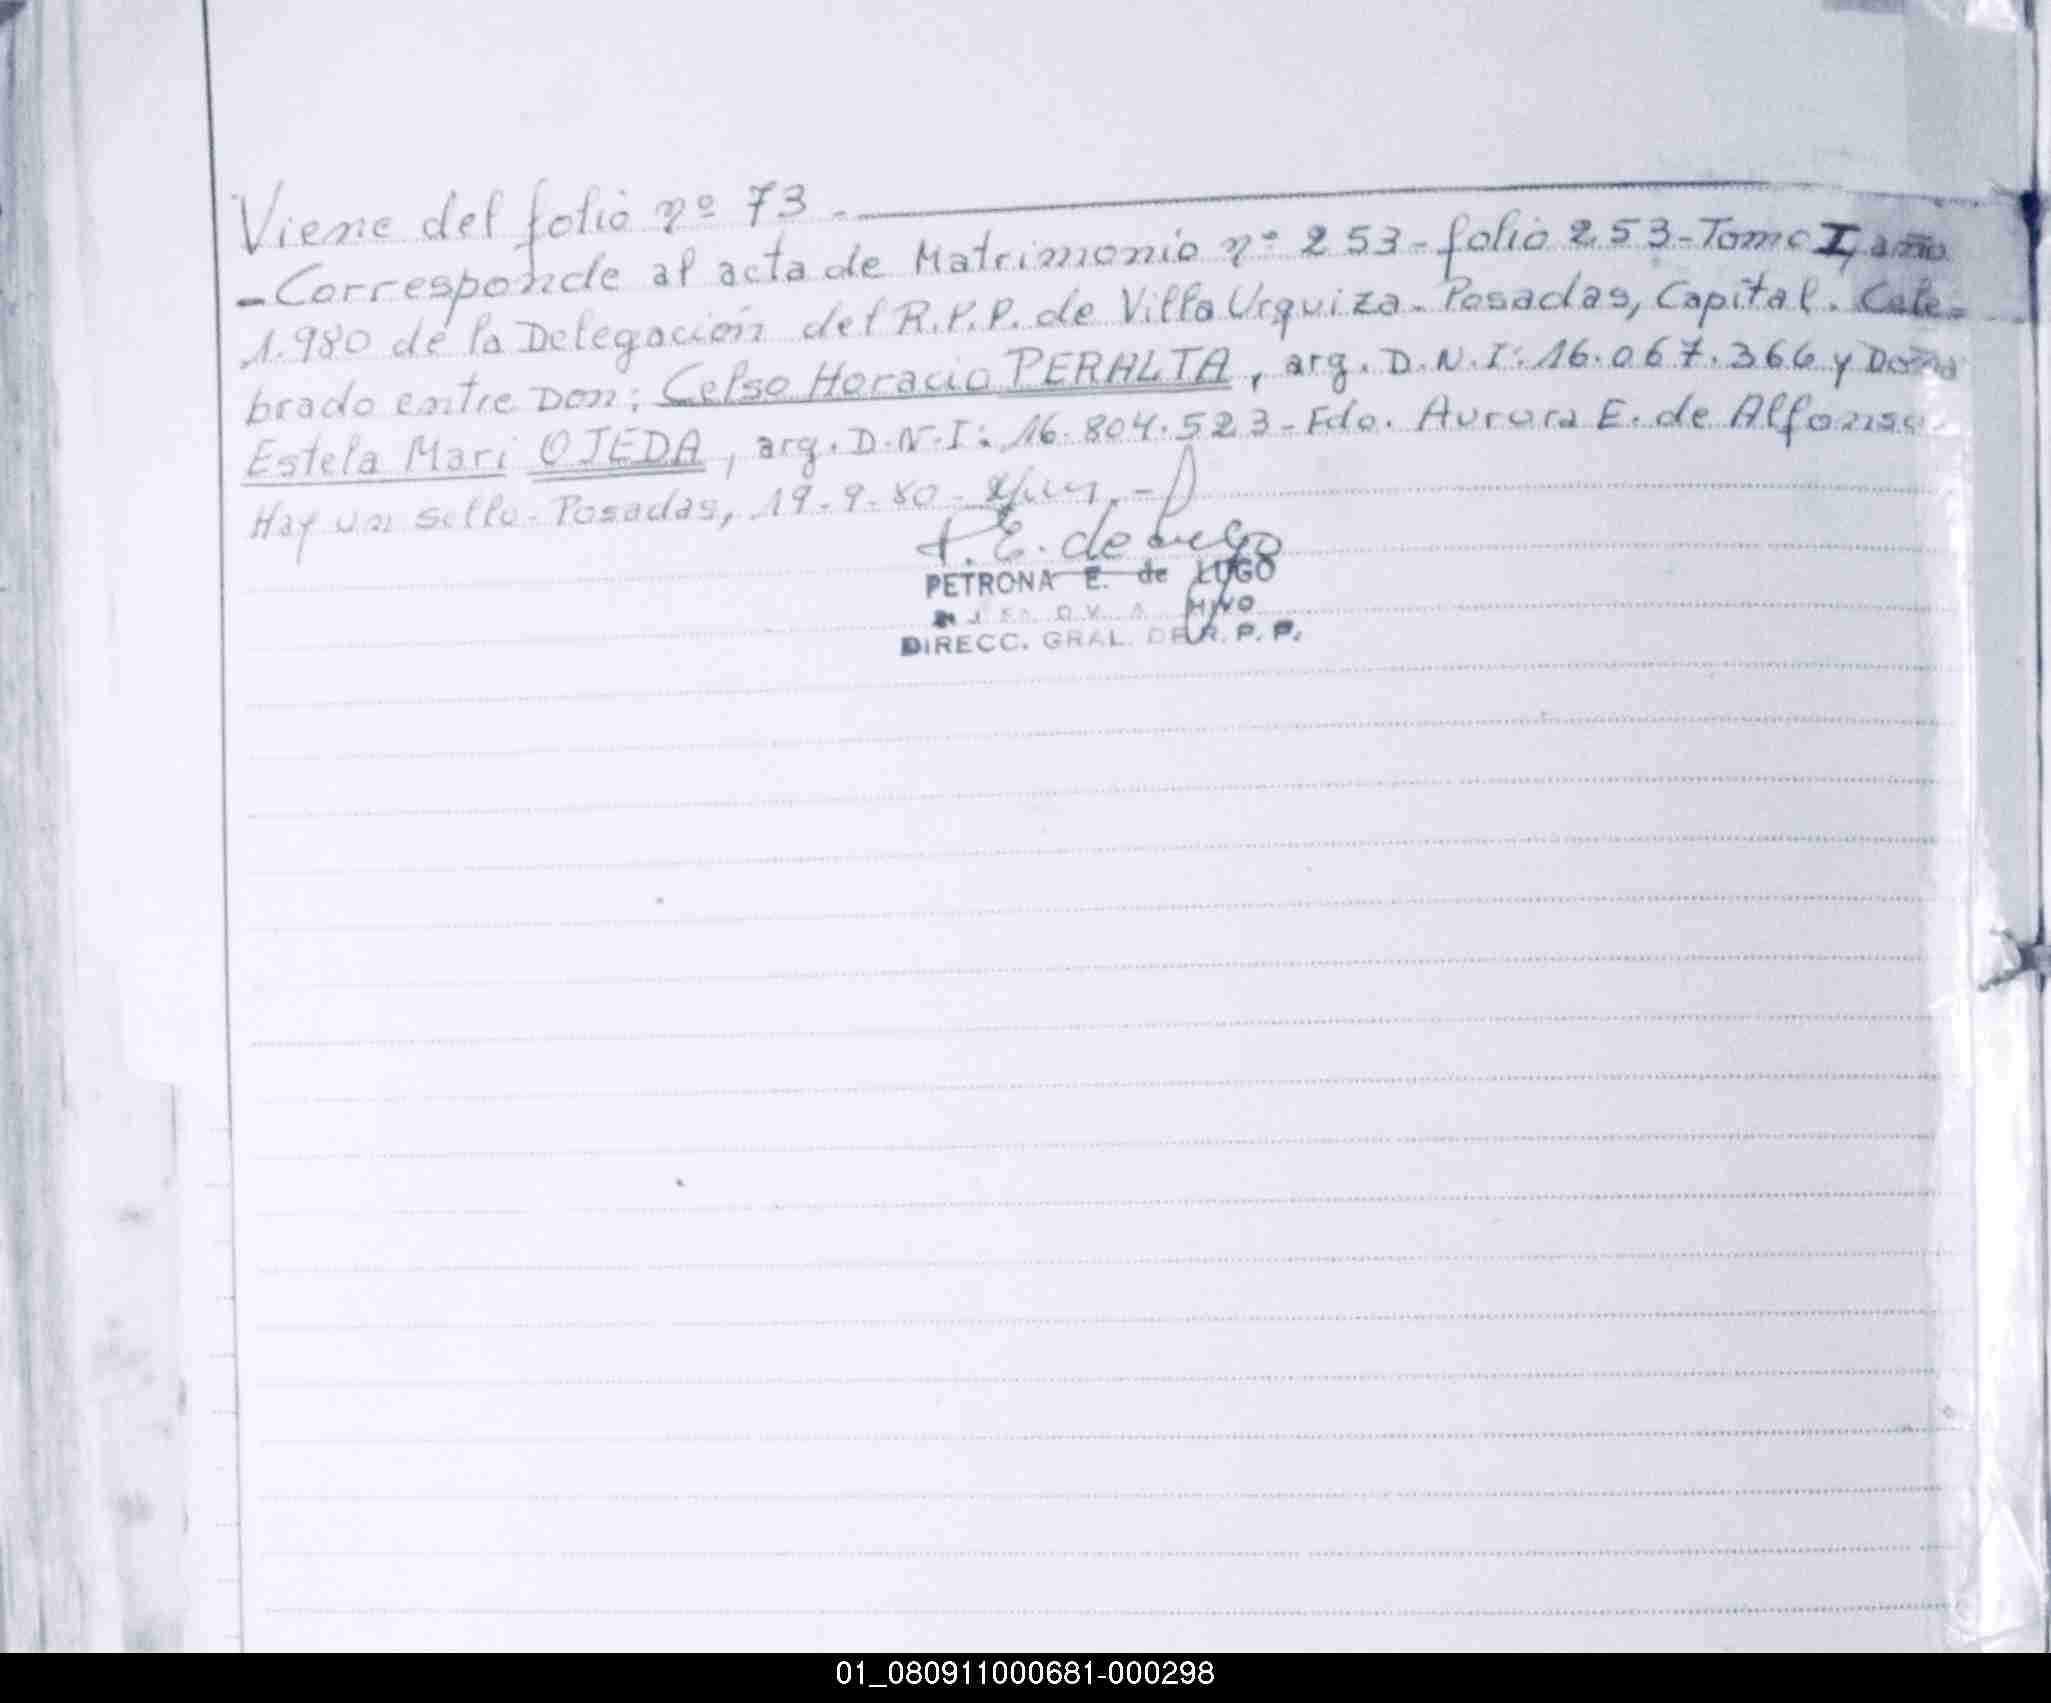 Viene del folio nº 73.
-Corresponde al acta de Matrimonio nº 253-folio 253-Tomo I, año
1.980 de la Delegación del R.P.P. de Villa Urquiza. Posadas, Capital. Cele-
brado entre Don: Celso Horacio PERALTA, arg. D.N.I: 16.067.366 y Doña
Estela Mari OJEDA, arg. D.N.I: 16.804.523-Fdo. Aurora E. de Alfonso-
Hay un sello. Posadas, 19-9-80-
P. E. de Lugo
PETRONA E. de LUGO
DIRECC. GRAL. DE R. P. P.
01_080911000681-000298